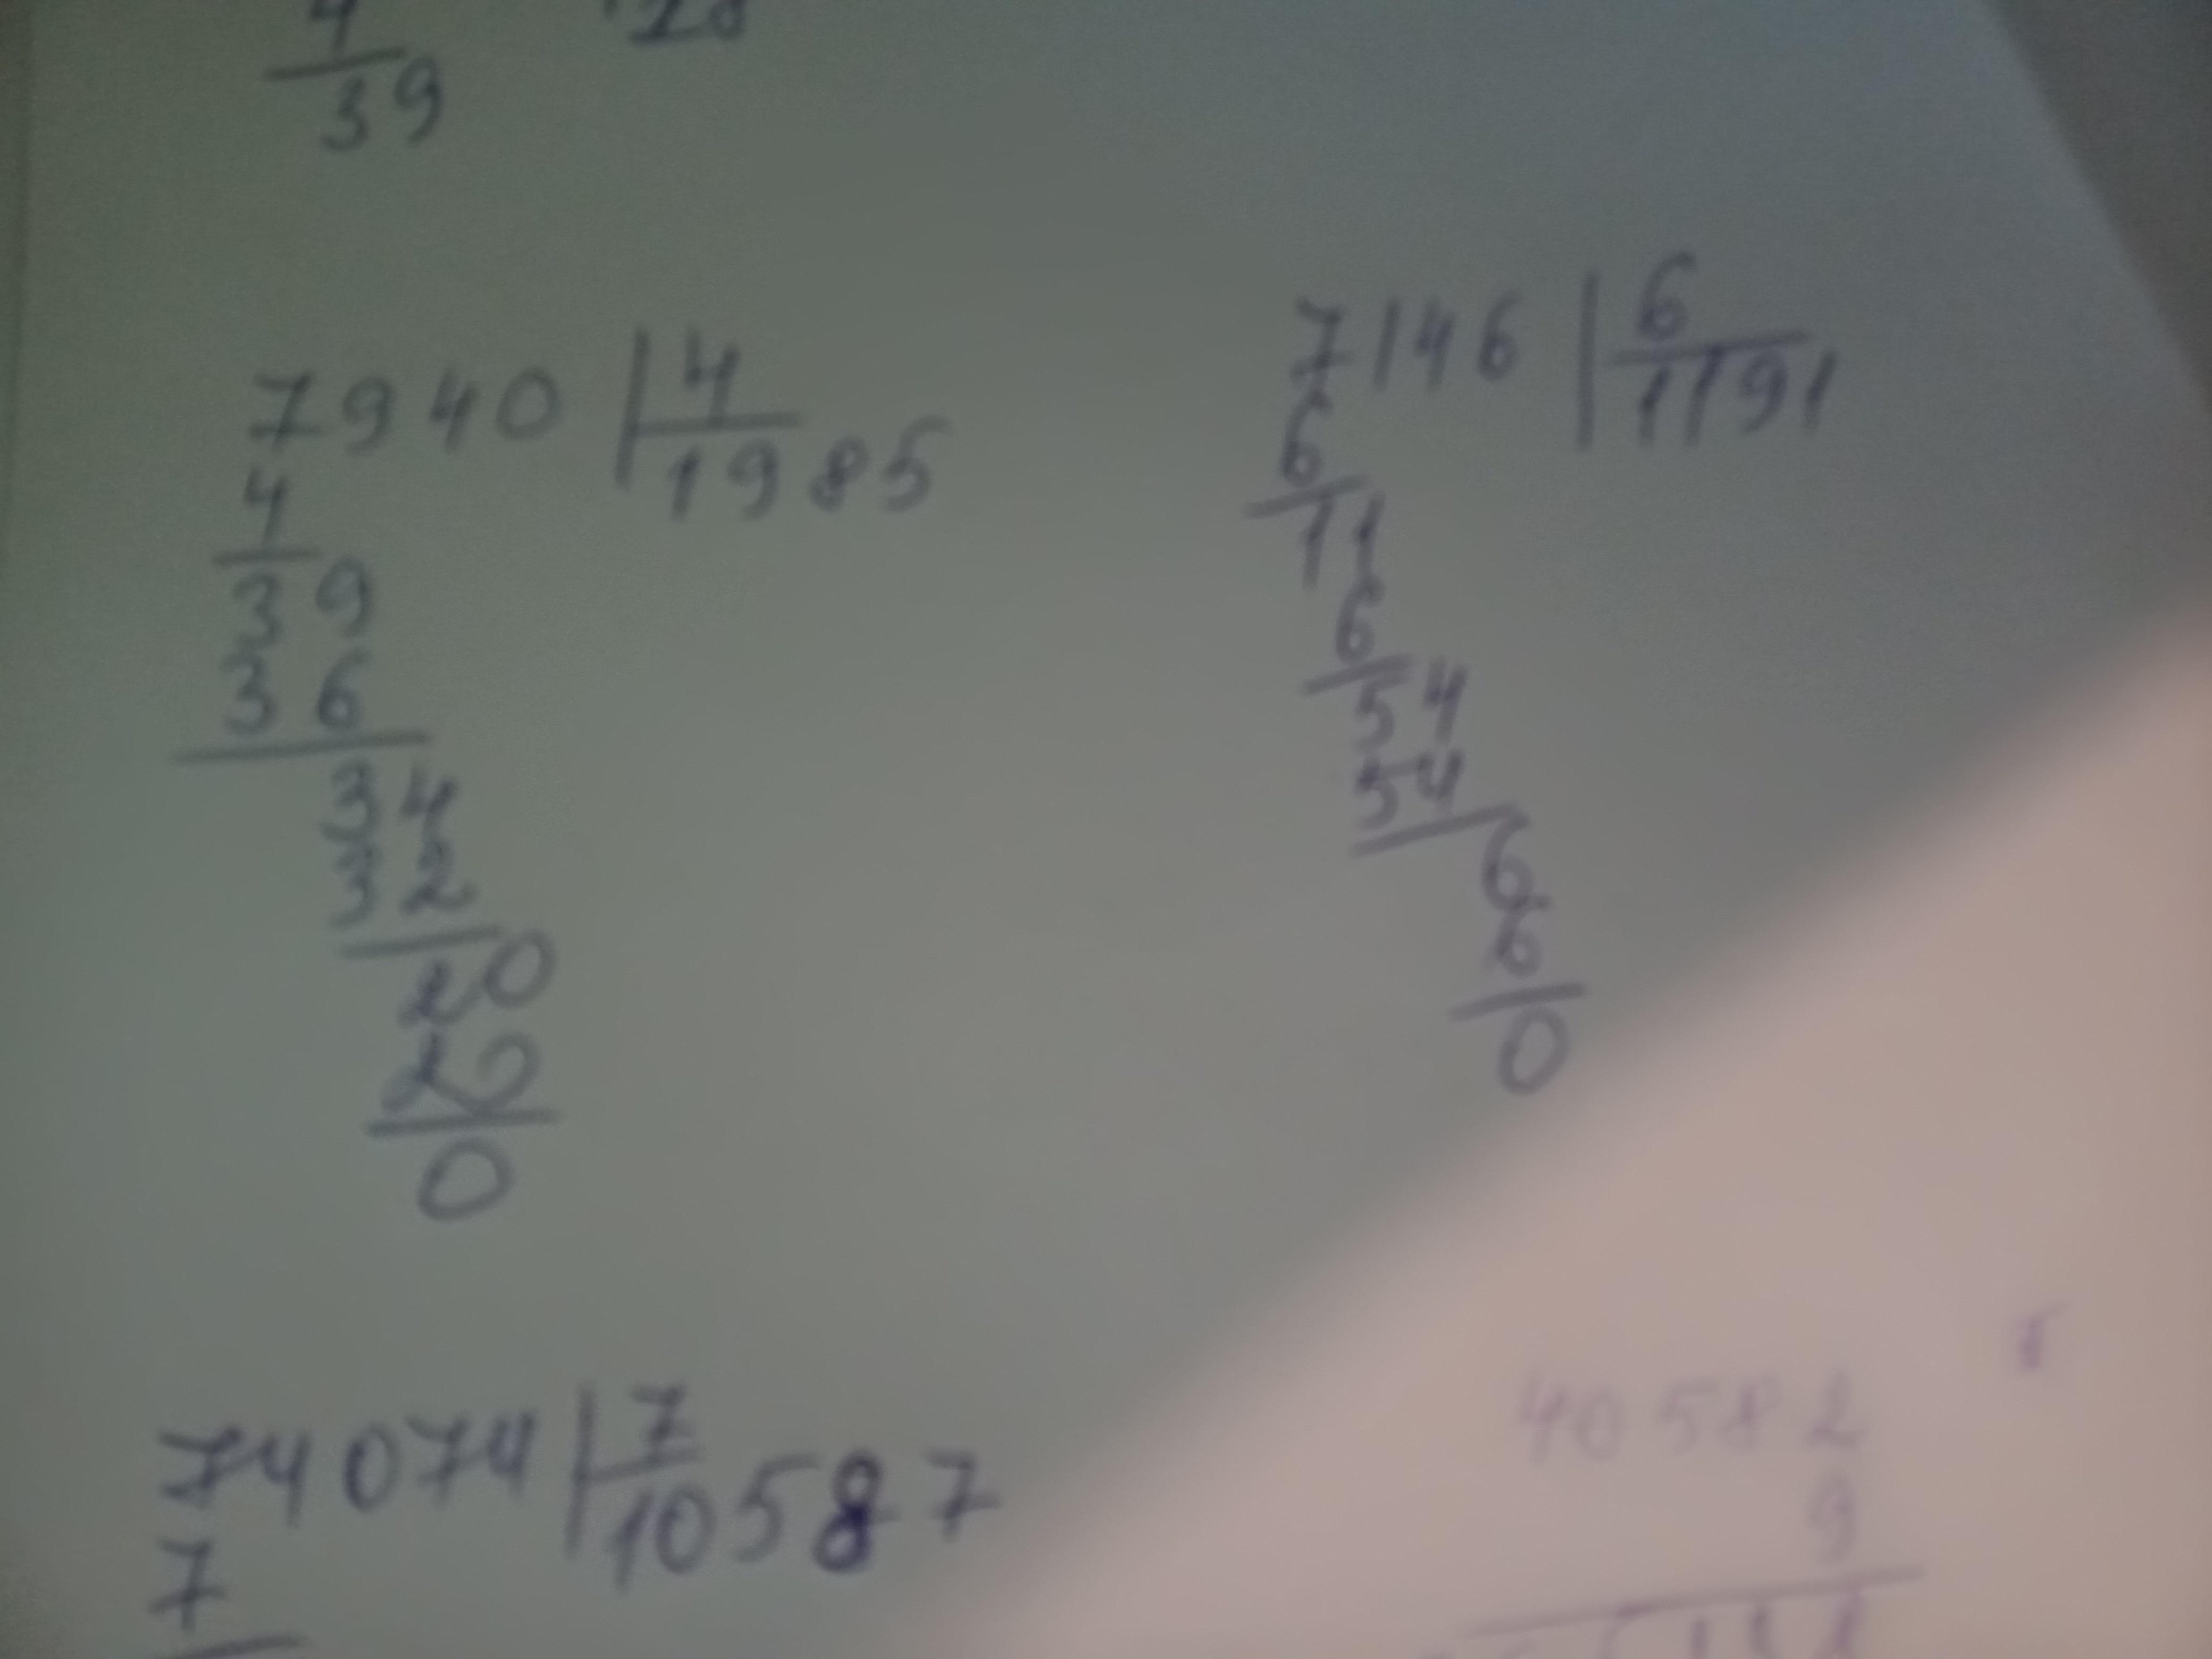 39
7940 | 4
4 1985
39
36
34
32
20
20
0
7146 | 6
6 1191
11
6
54
54
6
6
0
74074 | 7
7 10587
40582
9